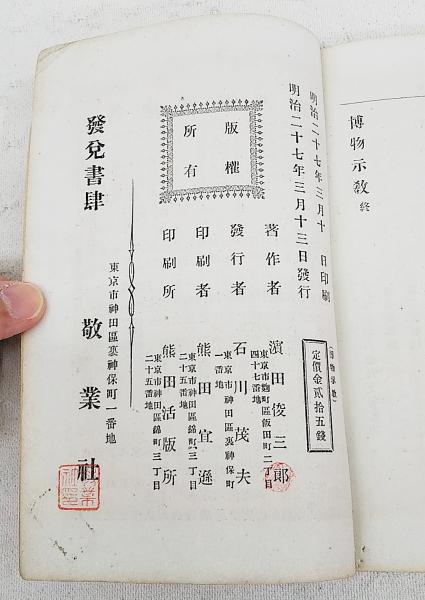 博物示敎終
明治二十七年三月十　日印刷
明治二十七年三月十三日發行
定價金貳拾五錢
版權
所有
著作者
東京市麴町區飯田町二丁目
四十七番地
濵田俊三郎
發行者
東京市神田區裏神保町
一番地
石川茂夫
印刷者
東京市神田區錦町三丁目
二十五番地
熊田宜遜
印刷所
東京市神田區錦町三丁目
二十五番地
熊田活版所
發兌書肆
東京市神田區裏神保町一番地
敬業社